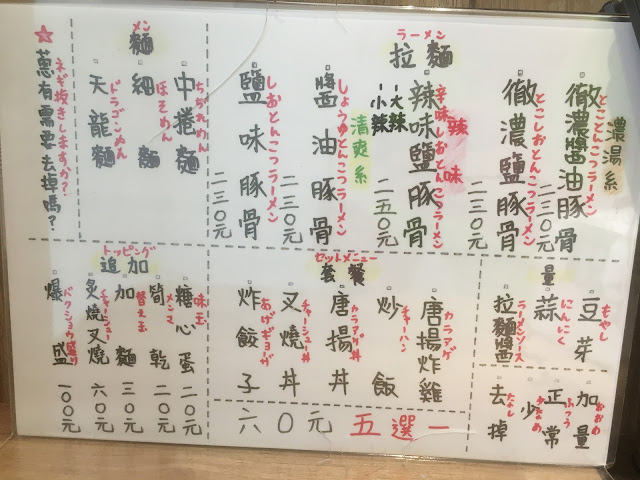 拉麵
ラーメン
濃湯系
徹濃醬油豚骨
とことんこつラーメン
二三〇元
徹濃鹽豚骨
とこしおとんこつラーメン
二三〇元
辣味
辣味鹽豚骨
辛味しおとんこつラーメン
大辣
小辣
二五〇元
清爽系
醬油豚骨
しょうゆとんこつラーメン
二三〇元
鹽味豚骨
しおとんこつラーメン
二三〇元
麵
メン
中捲麵
ちぢれめん
細麵
ほそめん
天龍麵
ドラゴンめん
☆蔥有需要去掉嗎?
ネギ抜きしますか?
量
豆芽
もやし
蒜
にんにく
拉麵醬
ラーメンソース
加量
おおめ
正常
ふつう
少
少なめ
去掉
なし
套餐
セットメニュー
唐揚炸雞
カラアゲ
炒飯
チャーハン
唐揚丼
カラアゲ丼
叉燒丼
チャーシュー丼
炸餃子
あげギョーザ
六〇元 五選一
追加
トッピング
糖心蛋 二〇元
味玉
筍乾 二〇元
メンマ
加麵 三〇元
替え玉
炙燒叉燒 六〇元
チャーシュー
爆盛 一〇〇元
バクショウ盛り